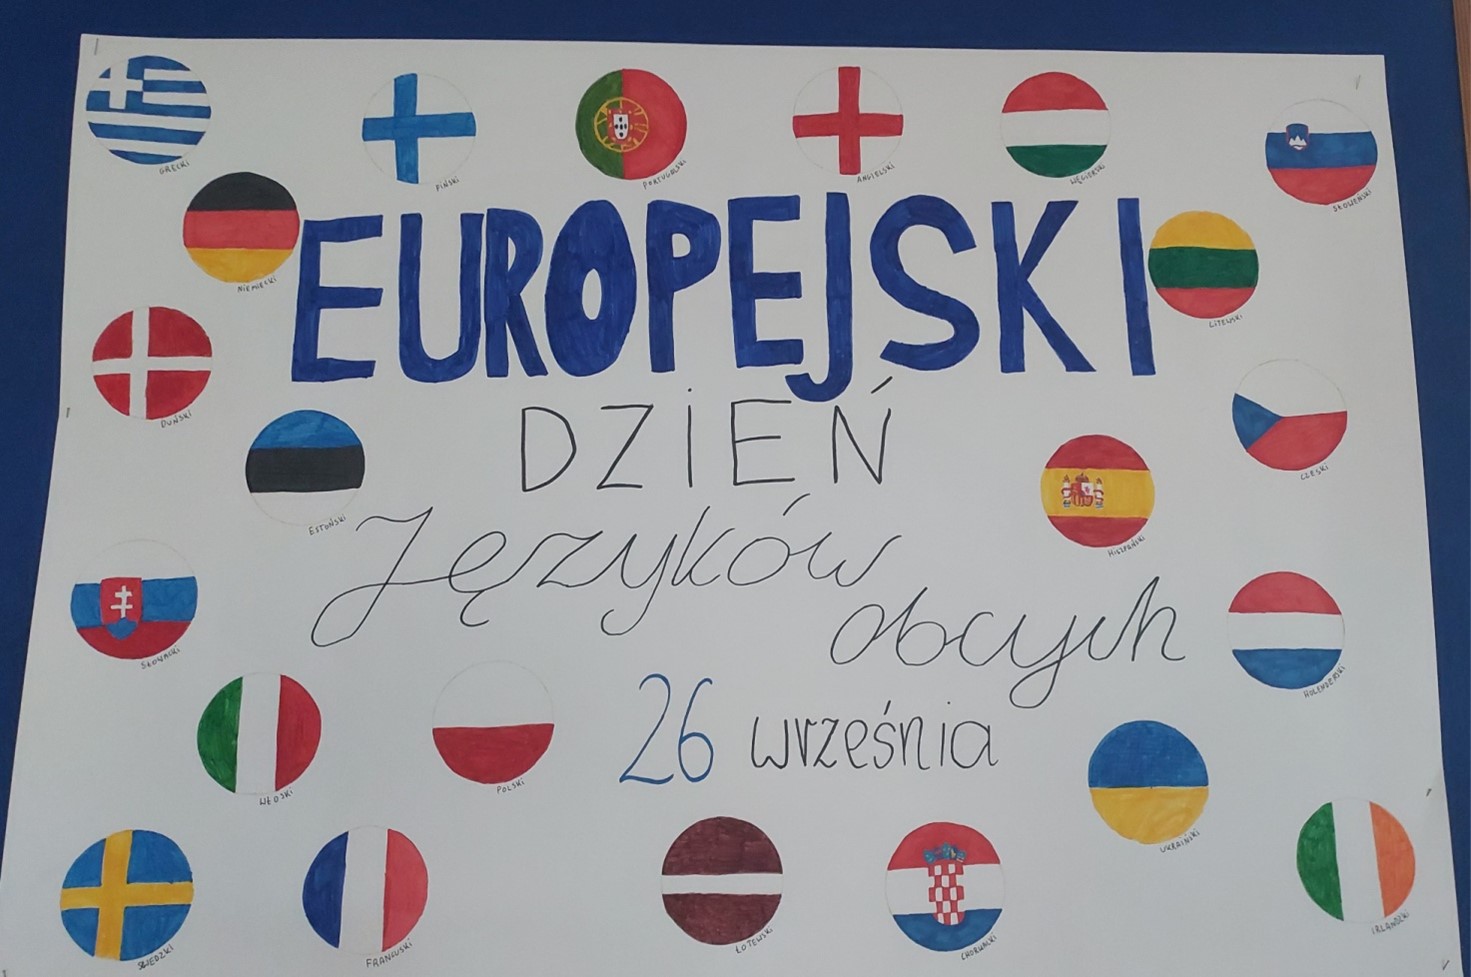 GRECKI
FIŃSKI
PORTUGALSKI
ANGIELSKI
WĘGIERSKI
SŁOWEŃSKI
NIEMIECKI
EUROPEJSKI
LITEWSKI
DUŃSKI
DZIEŃ
CZESKI
ESTOŃSKI
HISZPAŃSKI
Języków
obcych
SŁOWACKI
HOLENDERSKI
26 września
WŁOSKI
POLSKI
UKRAIŃSKI
SZWEDZKI
FRANCUSKI
ŁOTEWSKI
CHORWACKI
IRLANDZKI